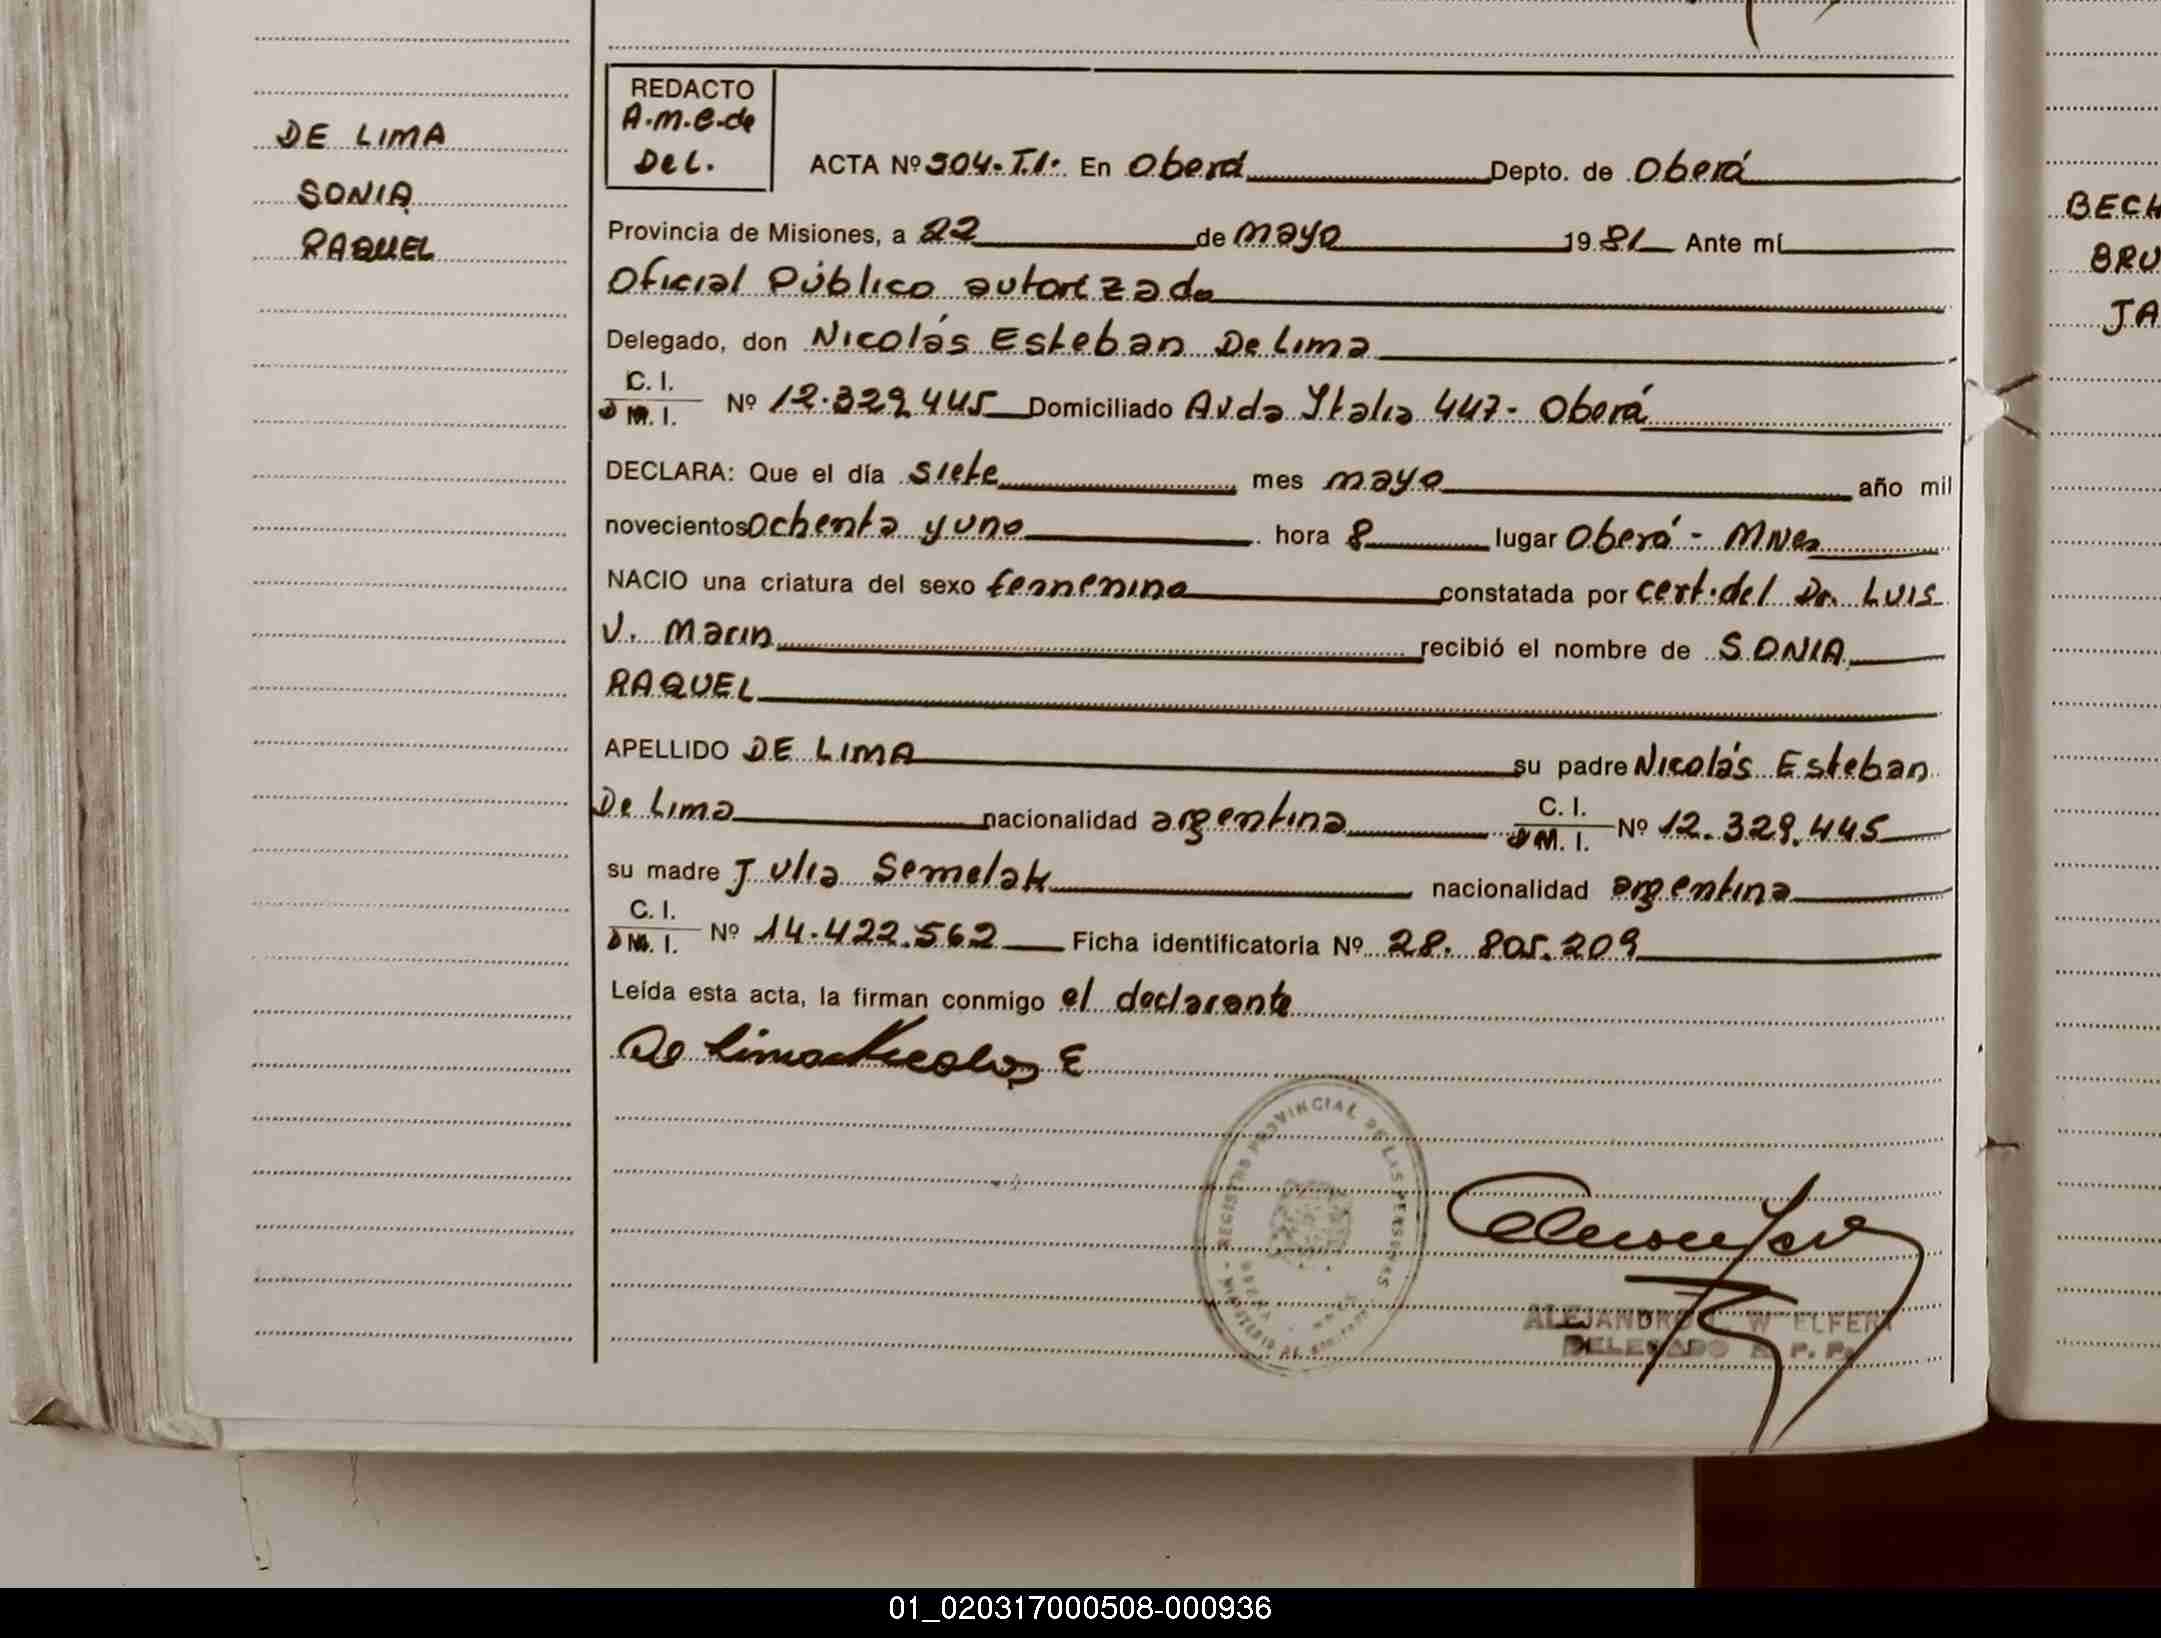 DE LIMA
SONIA
RAQUEL
REDACTO
A.M.C. de
Del.
ACTA Nº 504. T.I. En Oberá Depto. de Oberá
Provincia de Misiones, a 22 de mayo 1981 Ante mí
Oficial Público autorizado
Delegado, don Nicolás Esteban De Lima
C. I.
D M. I. Nº 12.329.445 Domiciliado Avda Italia 447- Oberá
DECLARA: Que el día siete mes mayo año mil
novecientos ochenta y uno hora 8 lugar Oberá - Mnes
NACIO una criatura del sexo femenino constatada por cert. del Dr. LUIS
V. Marin recibió el nombre de SONIA
RAQUEL
APELLIDO DE LIMA su padre Nicolás Esteban
De Lima nacionalidad argentina C. I.
D M. I. Nº 12.329.445
su madre Julia Semelak nacionalidad argentina
C. I.
D M. I. Nº 14.422.562 Ficha identificatoria Nº 28.805.209
Leída esta acta, la firman conmigo el declarante
De Lima Nicolas E
REGISTRO PROVINCIAL DE LAS PERSONAS
ALEJANDRO W ELFER
DELEGADO R. P. P.
BECH
BRU
JA
01_020317000508-000936